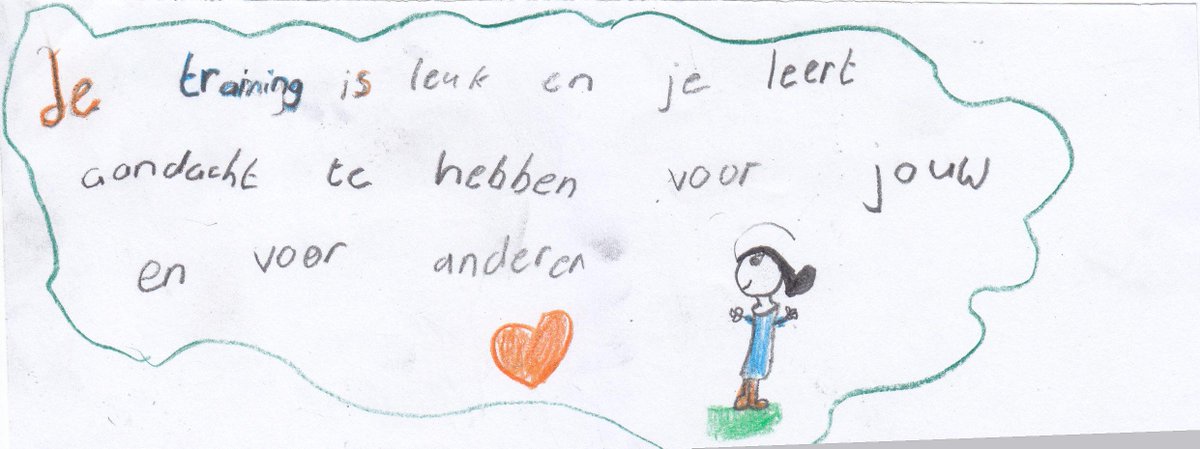 Je training is leuk en je leert
aandacht te hebben voor jouw
en voor anderen